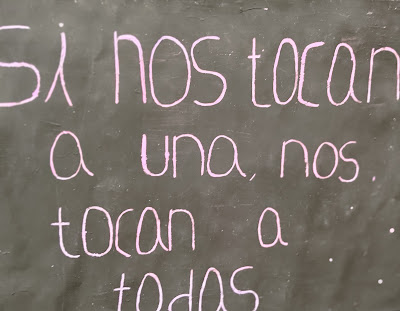 Si nos tocan
a una, nos.
tocan a
todas